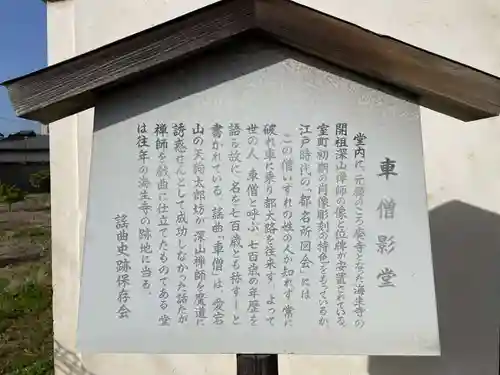 車僧影堂
堂内に、元禄のころ廃寺となった海生寺の
開祖深山禅師の像と位牌が安置されている。
室町初期の肖像彫刻の特色をもっているが
江戸時代の「都名所図会」には
この僧いずれの姓の人か知れず常に
破れ車に乗り都大路を往来す、よって
世の人、車僧と呼ぶ、七百歳の年歴を
語る故に、名を七百歳とも称す―と
書かれている。謡曲「車僧」は、愛宕
山の天狗太郎坊が深山禅師を魔道に
誘惑せんとして成功しなかった話だが
禅師を戯曲に仕立てたものである。堂
は往年の海生寺の跡地に当る。
謡曲史跡保存会